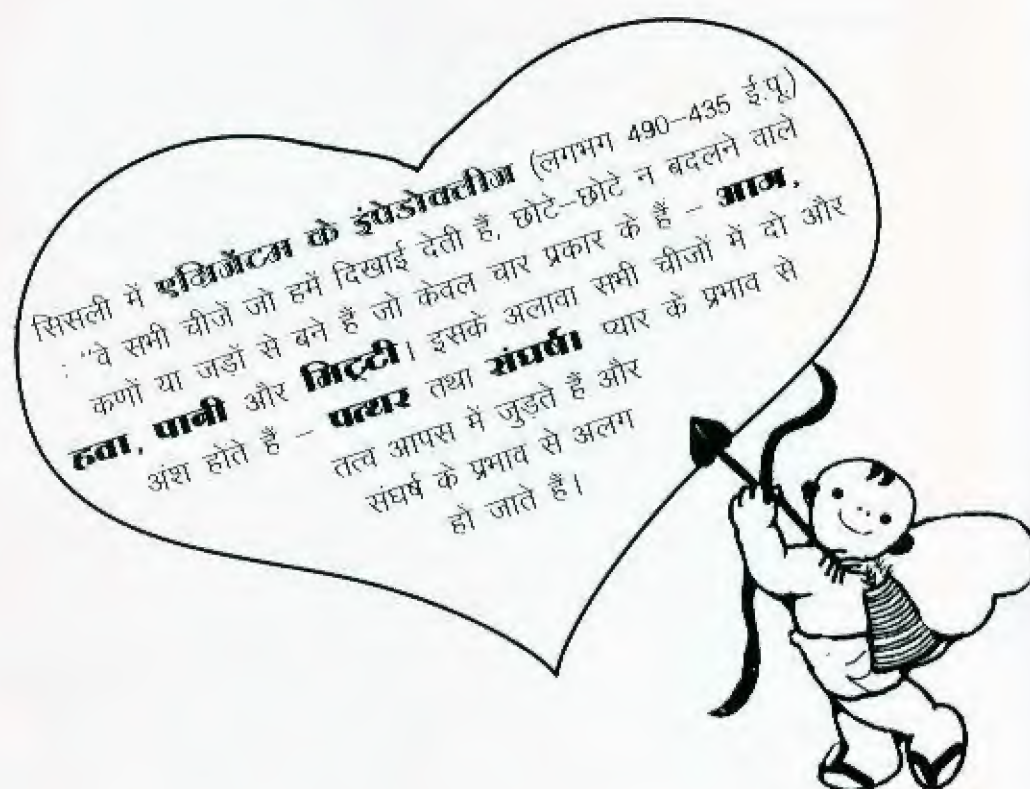 सिसली में एग्रिजेंटम के इंपेडोक्लीज (लगभग 490–435 ई.पू.)
: “वे सभी चीजें जो हमें दिखाई देती हैं, छोटे–छोटे न बदलने वाले
कणों या जड़ों से बने हैं जो केवल चार प्रकार के हैं – आग,
हवा, पानी और मिट्टी। इसके अलावा सभी चीजों में दो और
अंश होते हैं – पत्थर तथा संघर्ष। प्यार के प्रभाव से
तत्व आपस में जुड़ते हैं और
संघर्ष के प्रभाव से अलग
हो जाते हैं।